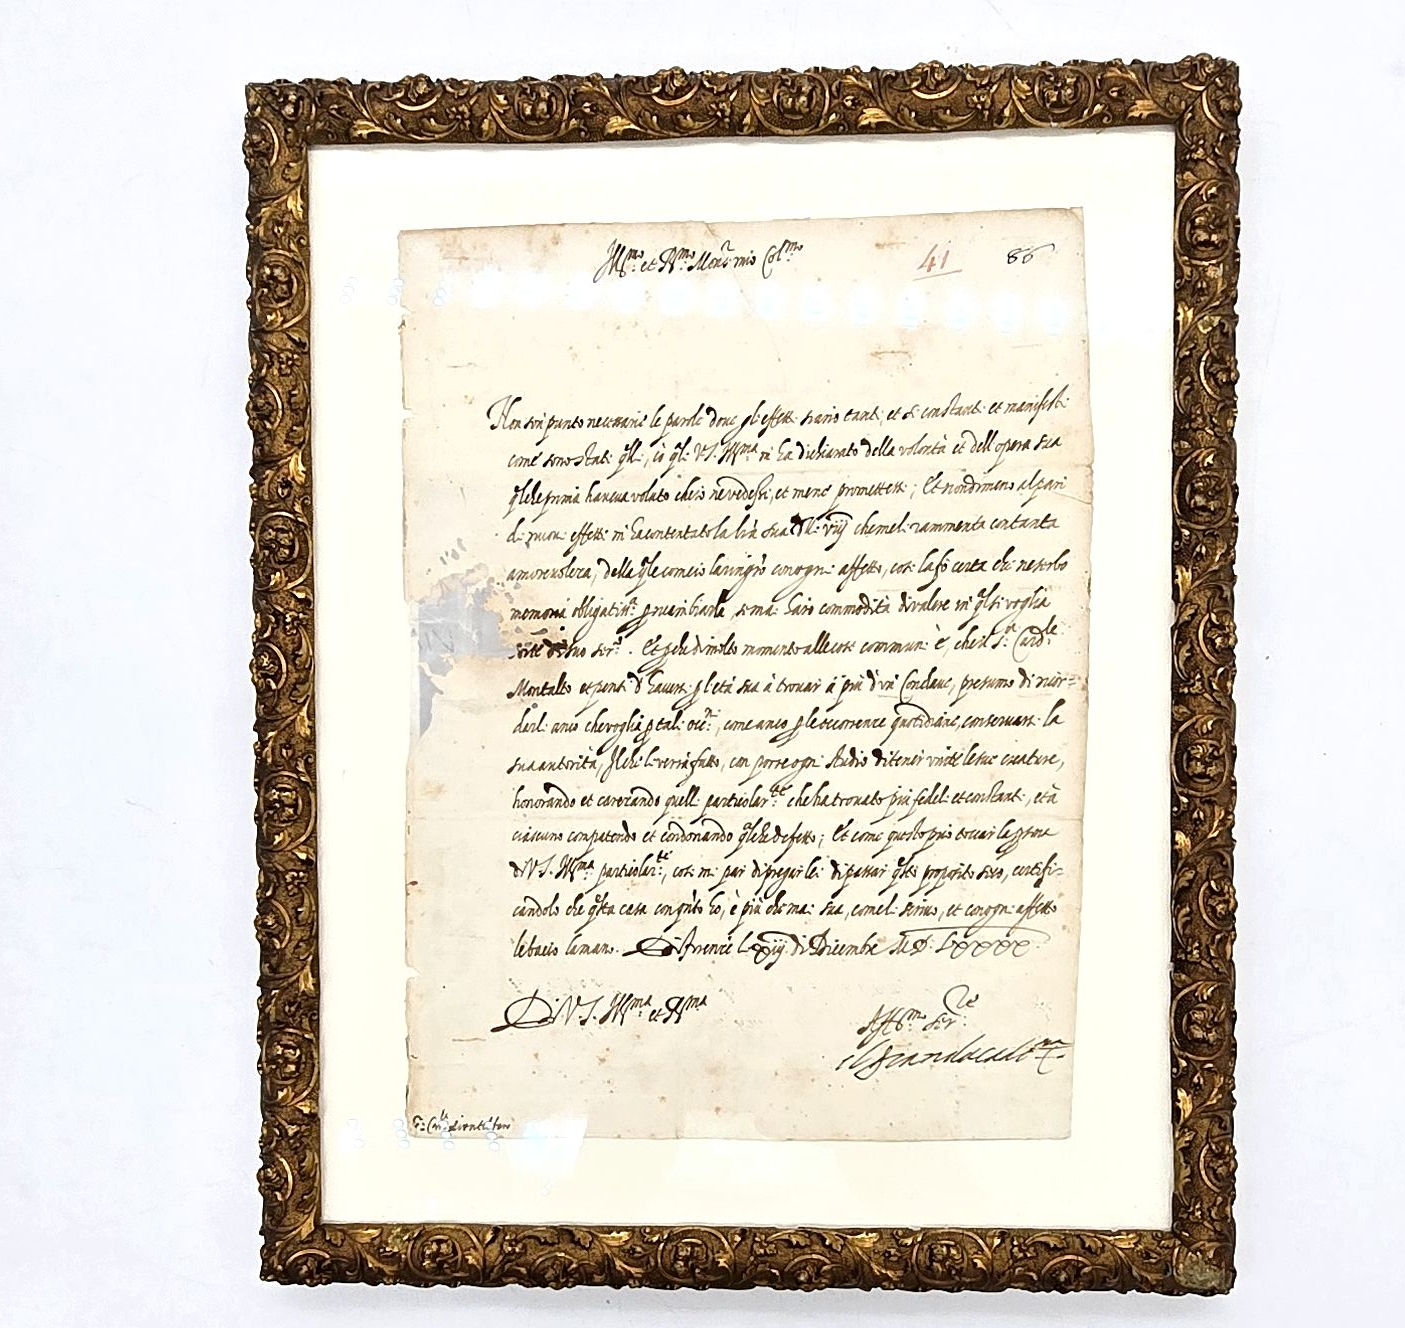 Ill.mo et R.mo Mons.r mio Col.mo
41
86
Non son punto necessarie le parole dove gl'effetti siano tanti, et sì constanti et manifesti
come sono stati q.lli, cõ q.li V.S. Ill.ma m'ha dichiarato della volontà et dell'opera sua
prima haveva voluto ch'io ne vedessi, et meno promettersi; Et nondimeno al pari
di nuovi effetti m'ha contentato la l.ra sua delli viij che me li rammenta con tanta
amorevolezza, della q.le come io la ringr.o con ogni affetto, così la fo certa che ne serbo
memoria obligatiss.a, se mai havrò commodità di valere in q.lsivoglia
suo ser.o. Et perche di molto momento alle cose communi è, che il S.or Card.le
Montalto et pensi d'havere p l'età sua à trovarsi à più d'un Conclave, presumo di ricor-
darli anco che voglia p tali occ.ni, come anco p le occorrenze quotidiane, conservarsi la
sua autorità, il che li verrà fatto, con porre ogni studio di tener unite le sue creature,
honorando et carezzando quelli particolar.te che ha trovato più fedeli et constanti, et à
ciascuno compatendo et condonando q.lche difetto; Et come questo può toccar la persona
di V.S. Ill.ma particolar.te, così mi par di pregarla di passar q.sti propositi seco, certifi-
candolo che q.sta casa con q.to ho, è più che mai sua, come li scrivo, et con ogni affetto
le bacio la mano. Di Firenze li xiij di Dicembre M.D.LXXXX
Di V.S. Ill.ma et R.ma
Aff.mo ser.re
il Gran duca di T.na